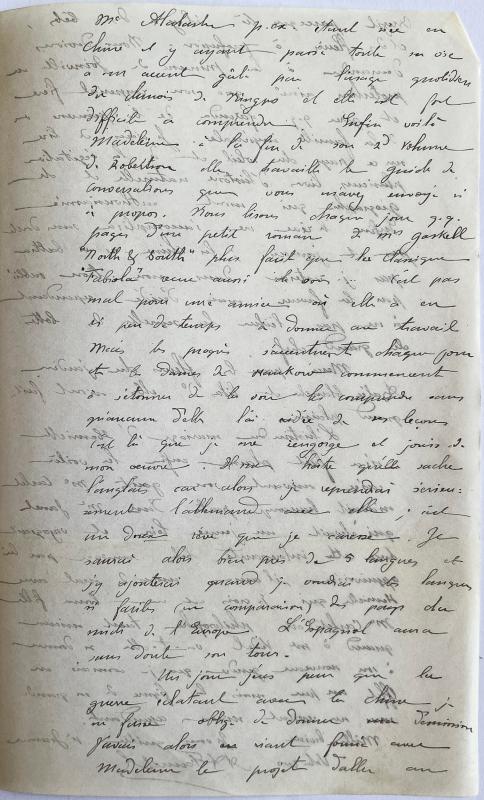 Mme p.ex. étant née en
Chine et y ayant passé toute sa vie
a un accent gâté par l'usage quotidien
du chinois de Ningpo et elle est fort
difficile à comprendre. Enfin voilà
Madeleine à la fin de son 2d volume
de Robertson elle travaille le guide de
conversations que vous m'avez envoyé si
à propos. Nous lisons chaque jour q.q.
pages d'un petit roman de Mrs Gaskell
"North & South" plus facile que le classique
"Fabiola" reçu aussi c'est pas
mal pour une année où elle a eu
si peu de temps à donner au travail
Mais les progrès s'accentuent chaque jour
et les dames de Hankow commencent
à s'étonner de la voir le comprendre sans
qu'aucune d'elles l'ait aidée de ses leçons
C'est là que je me rengorge et jouis de
mon œuvre. Il me hâte qu'elle sache
l'anglais car alors je reprendrai sérieu=
sement l'allemand avec elle; c'est
un doux rêve que je caresse. Je
saurai alors bien près de 5 langues et
j'y ajouterai quand je voudrai les langues
si faciles (en comparaison) des pays du
midi de l'Europe. L'Espagnol aura
sans doute son tour.
Un jour j'eus peur que la
guerre éclatant avec la Chine je
ne fusse obligé de donner ma démission
J'avais alors en riant formé avec
Madeleine le projet d'aller au